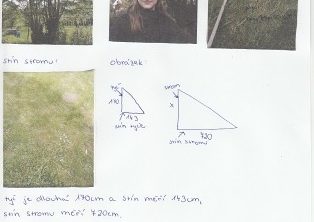 stín stromu:
obrázek:
tyč
strom
170
x
143
720
stín tyče
stín stromu
tyč je dlouhá 170cm a stín měří 143cm,
stín stromu měří 720cm.